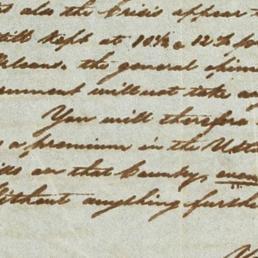 also the Crisis appear
still kept at 10½ a 12½ p
Orleans. the general opin
ernment will not take a
You will therefore
a premium in the Utt
on that Country, even
Without anything furthe